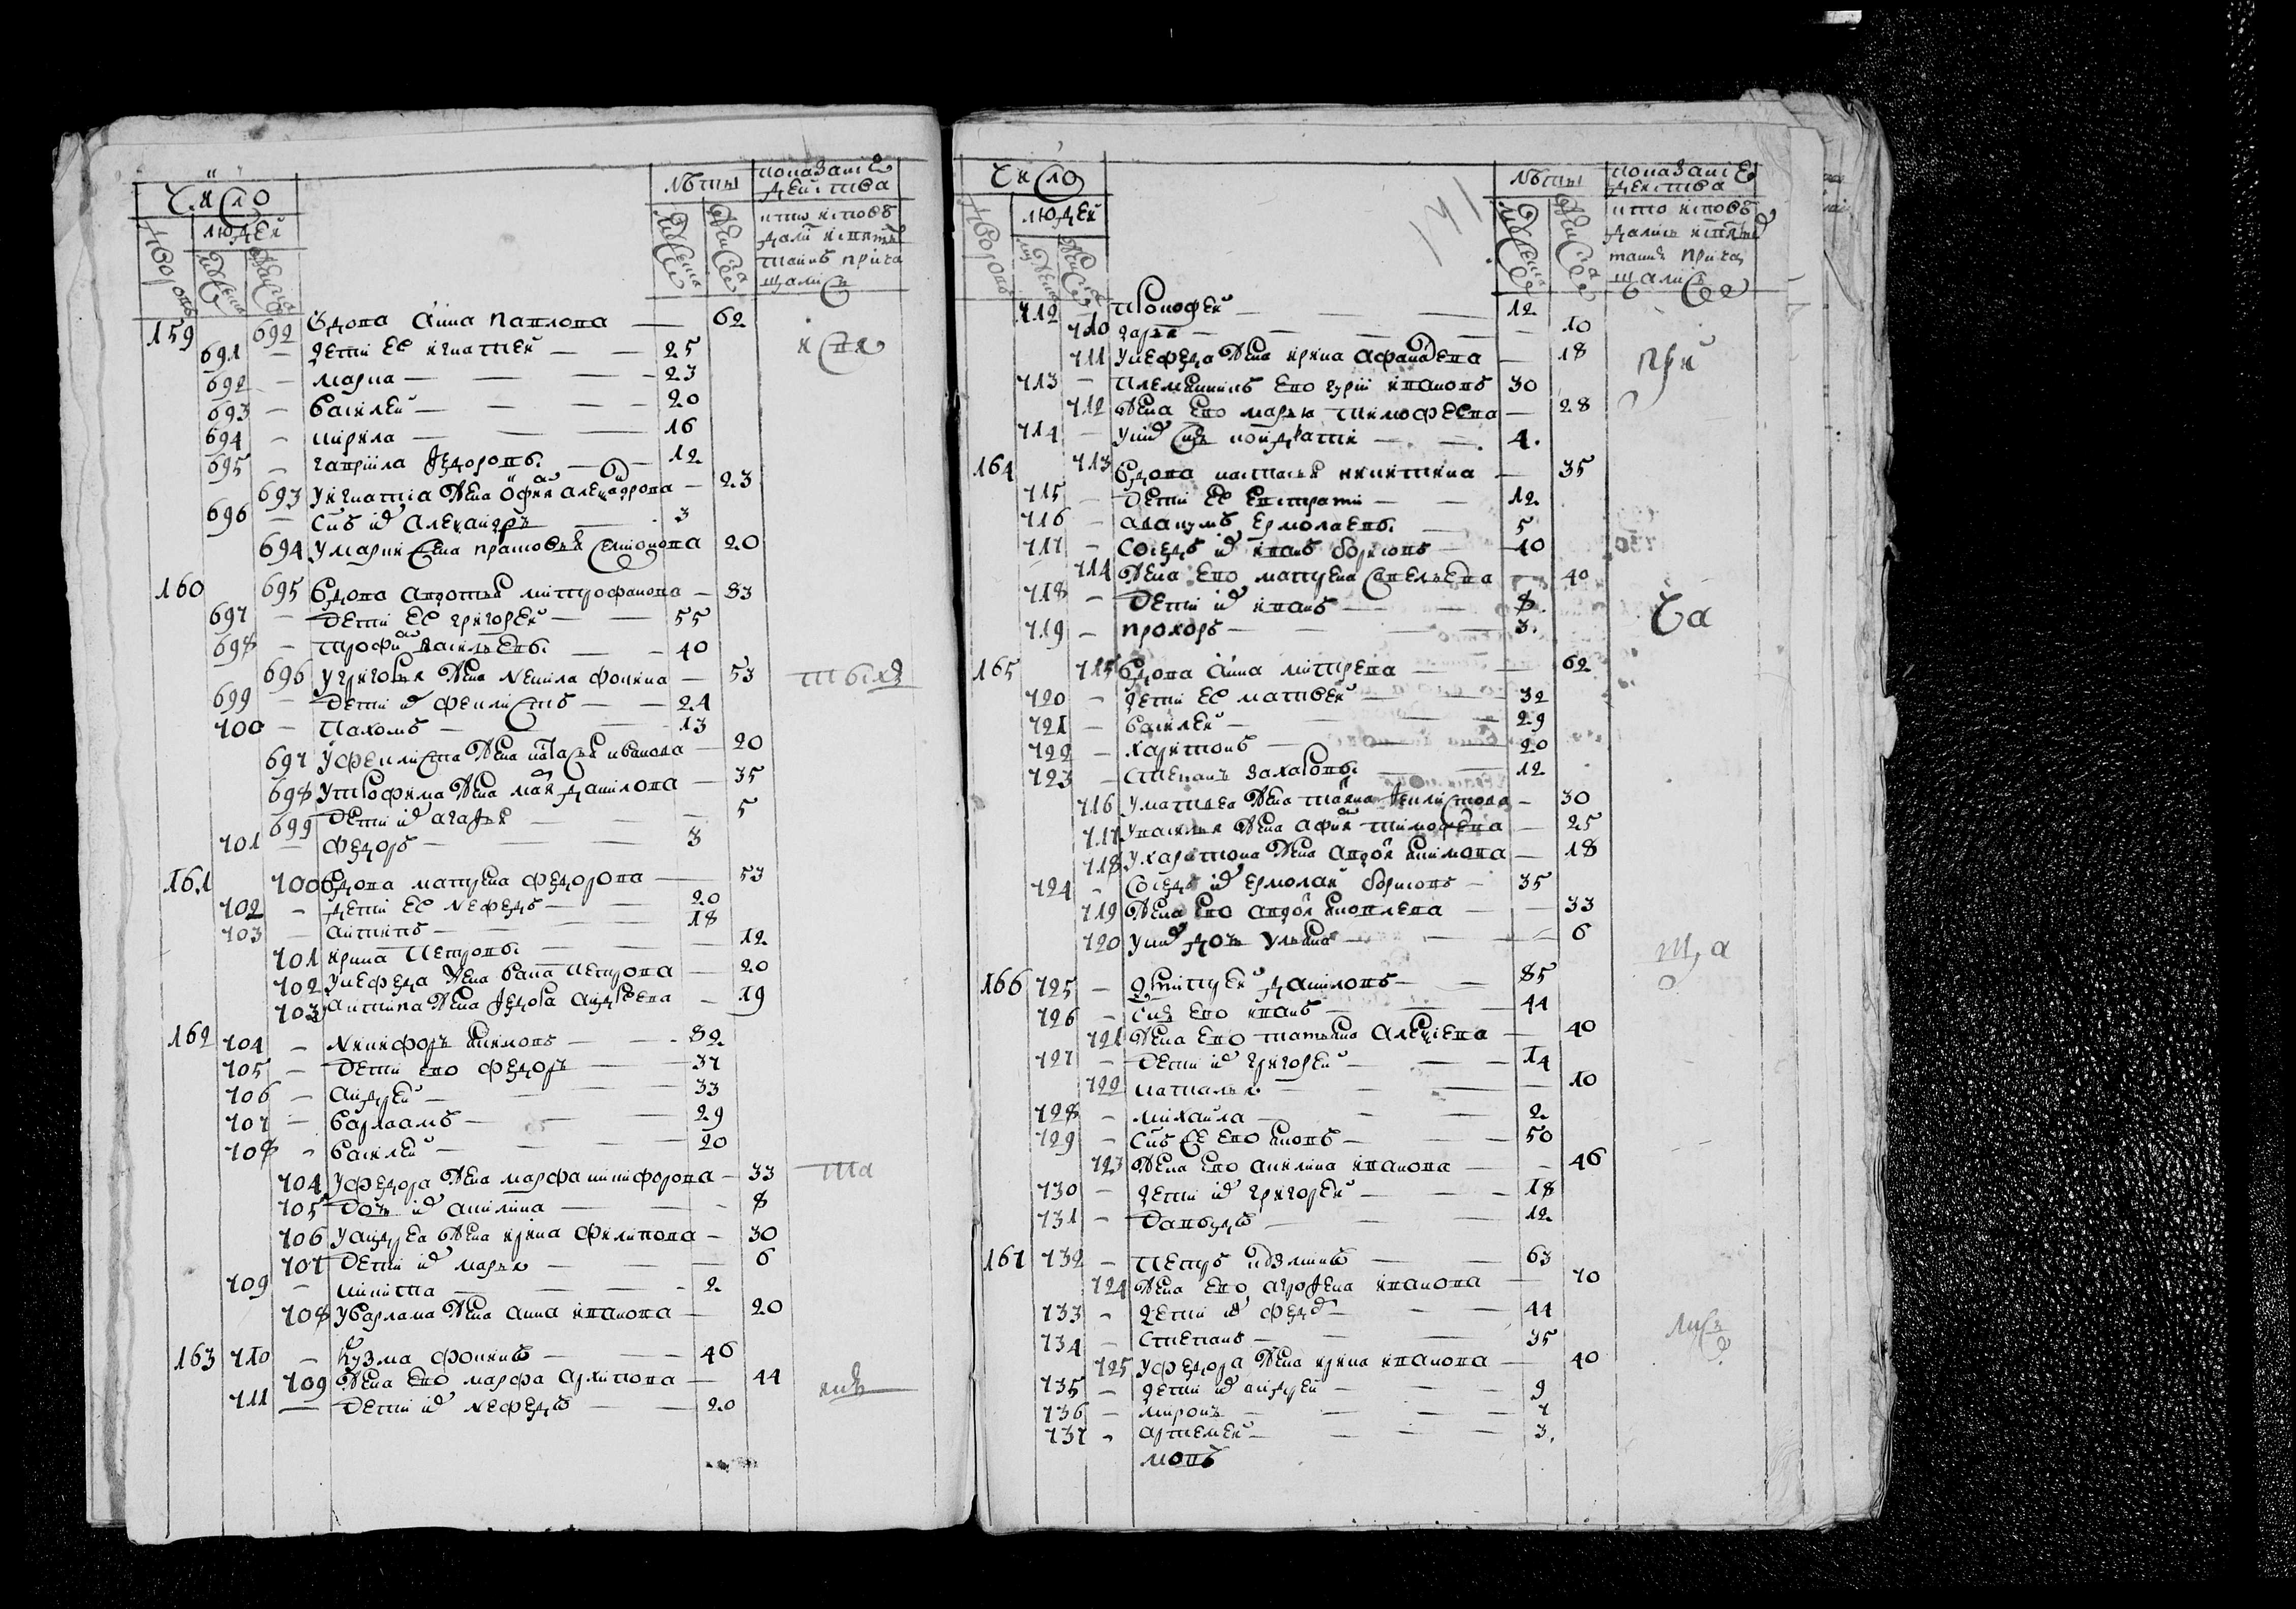 Число
людей
дворовъ
мужеска
женска
лѣты
мужеска
женска
показаніе
действа
кто исповѣ
дали и святы
таинъ прича
щались
159 692 Вдова Анна Павлова — 62
691 — дети ее игнатей — 25
692 — марка — 23
693 — василей — 20
694 — кирила — 16
695 — гаврила Федоровы — 12
693 У игнатіа жена Офимя александрова — 23
696 — сынъ их александръ — 3
694 У марки жена прасковья семионова 20
160 695 Вдова авдотья митрофанова — 83
697 — дети ее григорей — 55
698 — трофимъ васильевы — 40
696 У григорья жена ненила фокина — 53
699 — дети их феклистъ — 24
700 — Пахомъ — 13
697 У феклиста жена наталья иванова — 20
698 У трофима жена марья данилова — 35
699 дети их агафья — 5
701 — федоръ — 3
161 700 Вдова матрена федорова — 53
702 — дети ее нефедъ — 20
703 — антипъ — 18
701 ирина Петровы — 12
702 У нефеда жена Петрова — 20
703 У антипа жена федора андреева — 19
162 704 — никифоръ акимовъ — 82
705 — дети ево федоръ — 37
706 — андрей — 33
707 — варлаамъ — 29
708 — василей — 20
704 У федора жена марфа никифорова — 33
705 дочь их акилина — 8
706 У андрея жена ирина филипова — 30
707 дети их марья — 6
709 — никита — 2
708 У варлама жена анна иванова — 20
163 710 — кузма фокинъ — 46
709 жена ево марфа архипова — 44
711 — дети их нефедъ — 20
испо
вѣ
та
ихъ
Число
людей
дворовъ
мужеска
женска
141
лѣты
мужеска
женска
показаніе
действа
кто исповѣ
дались и святых
таинъ прича
щались
712 — тимофей — 12
710 дарья — 10
711 У нефеда жена ирина афанасева — 18
713 — племянникъ ево гурій ивановъ 30
712 жена ево марья тимофеева — 28
714 — У них сынъ кондратій — 4
164 713 Вдова настасья никитина — 35
715 — дети ее евстратій — 12
716 — авакумъ ермолаевы — 5
717 — Соседъ их иванъ борисовъ — 40
714 жена ево матрена савельева — 40
718 — дети их иванъ — 8
719 — прохоръ — 3
165 715 вдова анна митрева — 62
720 — дети ее матвей — 32
721 — василей — 29
722 — харитонъ — 20
723 — степанъ захаровы — 12
716 У матвея жена татьяна феклистова — 30
717 У василья жена афимя тимофеева — 25
718 У харитона жена авдотья акимова — 18
724 — Соседъ их ермолай борисовъ — 35
719 жена ево авдотья яковлева — 33
720 У них дочь ульяна — 6
166 725 — Дмитрей даниловъ — 85
726 — сынъ ево иванъ — 44
721 жена ево татьяна алексеева — 40
727 — дети их григорей — 14
722 наталья — 10
728 — михайла — 2
729 — сынъ ево яковъ — 50
723 жена ево акилина иванова — 46
730 — дети их григорей — 18
731 — давыдъ — 12
167 732 — Петръ козминъ — 63
724 жена ево агрофена иванова — 70
733 — дети их федоръ — 44
734 — степанъ — 35
725 У федора жена ирина иванова — 40
735 — дети их андрей — 9
736 — миронъ — 7
737 — артемей — 3
мовѣ
при
ча
ща
лись